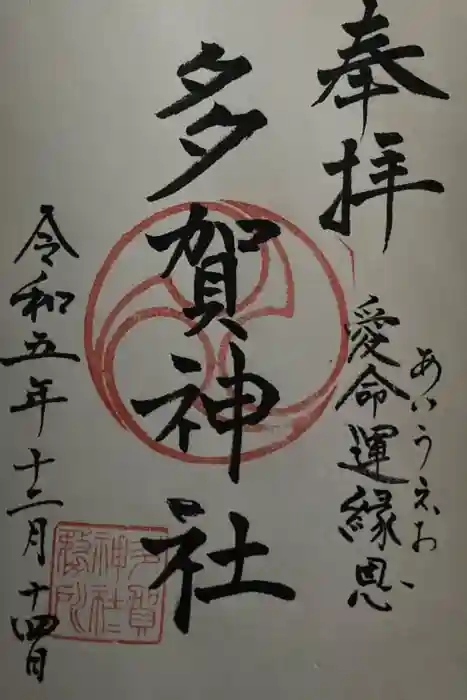 奉拝
愛命運縁恩
あいうえお
多賀神社
令和五年十二月十四日